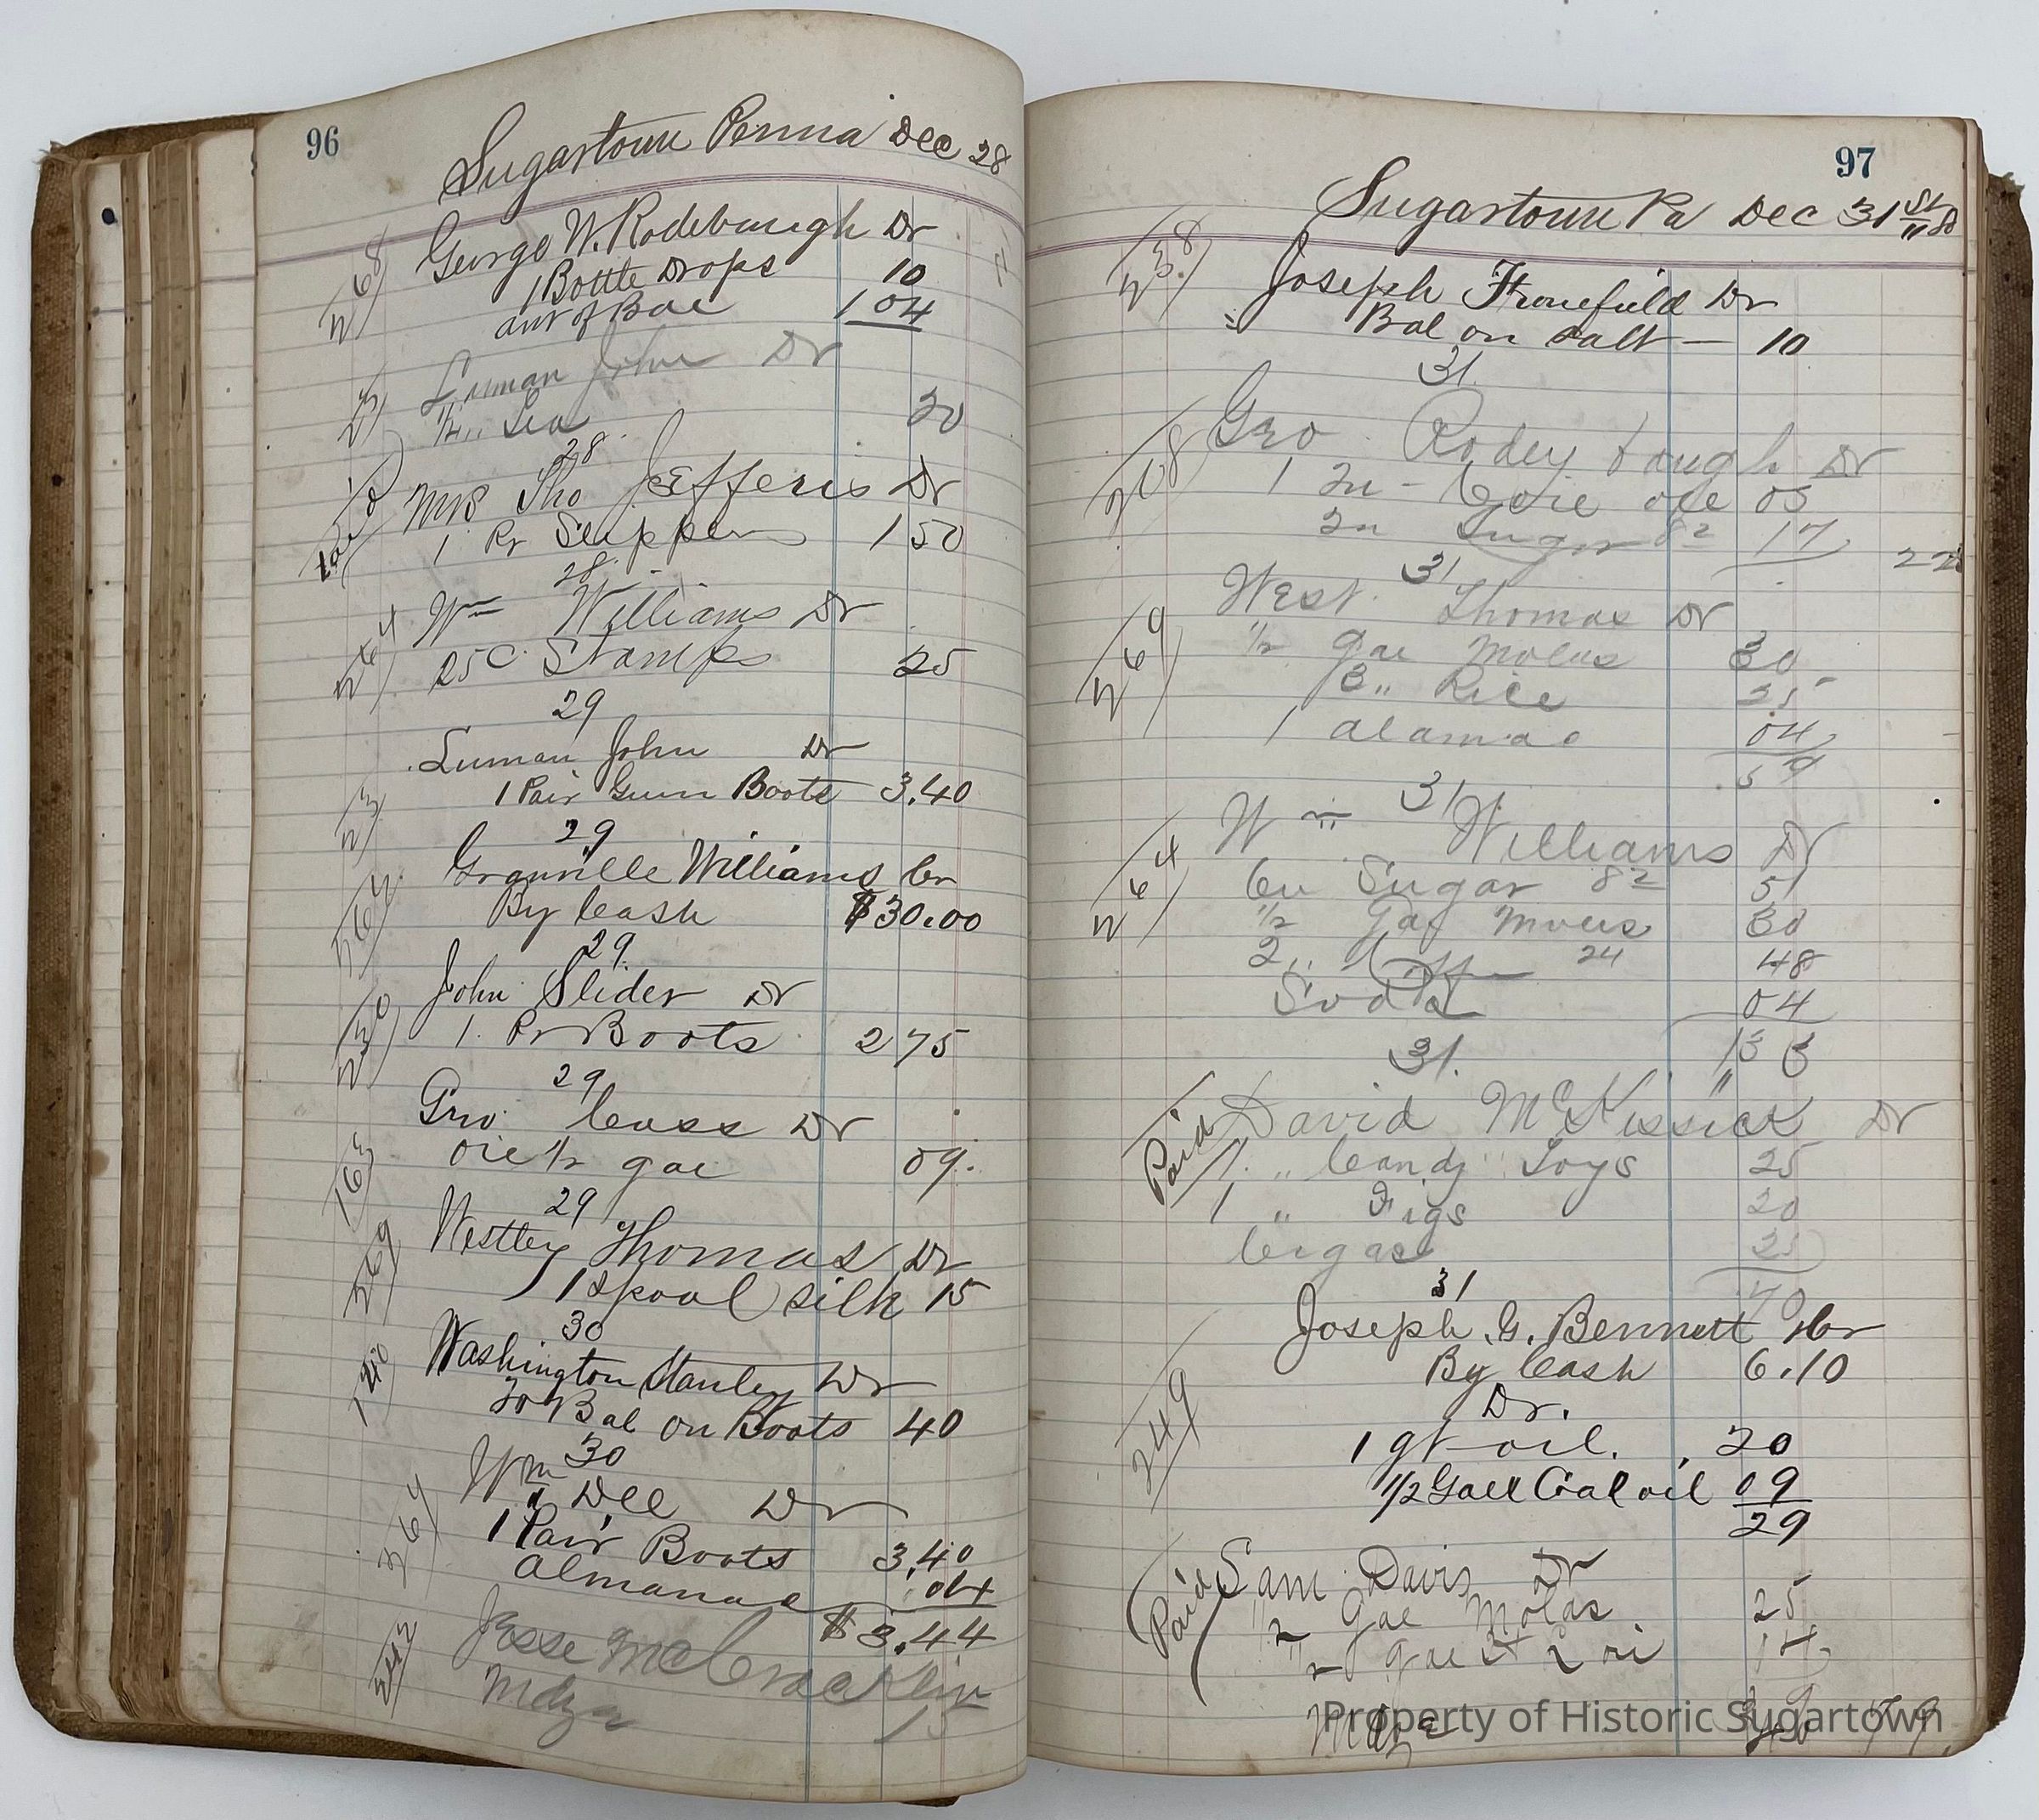 96
Sugartown Penna Dec 28
268
George W. Rodebaugh Dr
1 Bottle Drops 10
amt of Bal 1 04
23
Luman John Dr
1/2 " Tea 20
28
Mrs Tho Jefferis Dr
1 Pr Slippers 1 50
28
264
Wm Williams Dr
25c Stamps 25
29
Luman John Dr
23
1 Pair Gum Boots 3.40
29
Granville Williams Cr
By Cash $30.00
29
John Slider Dr
230
1. Pr Boots 2 75
29
Geo Cass Dr
163
oil 1/2 gal 09.
29
Westley Thomas Dr
269
1 spool silk 15
30
Washington Stanley Dr
To Bal on Boots 40
30
Wm Dell Dr
1 Pair Boots 3.40
Almanac .04
$3.44
Jesse McCracklin
Mdze 15
97
Sugartown Pa Dec 31 st
238
Joseph Dr
Bal on salt — 10
31.
268
Geo Rodeybough Dr
1 oil 05
2 " Sugar 8 1/2 17 22
31
West. Thomas Dr
269
1/2 gal Molas 30
3 " Rice 25
1 alamac 04
59
31
Wm Williams Dr
264
6 " Sugar 8 1/2 51
1/2 Gal 30
2 " Coffee 24 48
Soda 04
1 33
31.
Paid
David McKissick Dr
1 " Candy " Toys 25
1 " Figs 20
Cigars 25
70
31
Joseph G. Bennett Cr
249
By Cash 6.10
Dr.
1 qt oil. 20
1/2 Gall Coal oil 09
29
Paid
Sam Davis Dr
1/2 Gal Molas 25
1/2 gal 14
Mdze
Property of Historic Sugartown